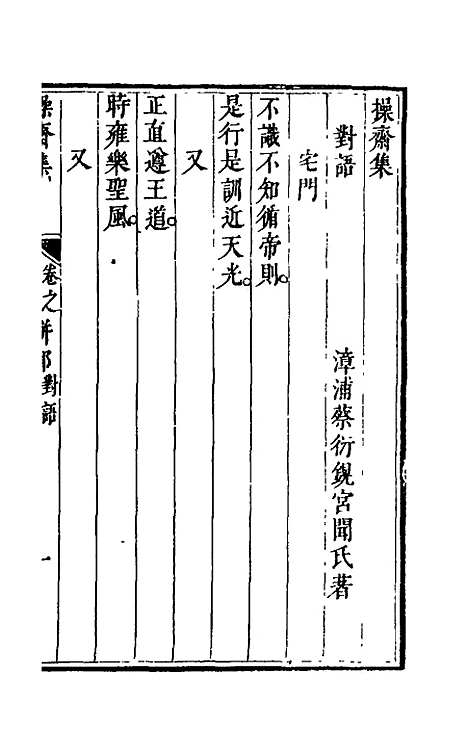 操齋集
對語　漳浦蔡衍鎤宮聞氏著
宅門
不識不知循帝則。
是行是訓近天光。
又
正直遵王道。
時雍樂聖風。
又
操齋集
卷之
部對語
一